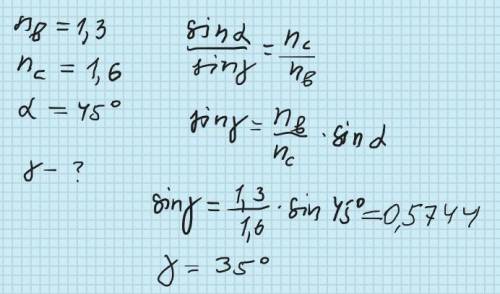 n_в = 1,3
n_c = 1,6
α = 45°
γ - ?
sinα/sinγ = n_c/n_в
sinγ = n_в/n_c · sinα
sinγ = 1,3/1,6 · sin 45° = 0,5744
γ = 35°